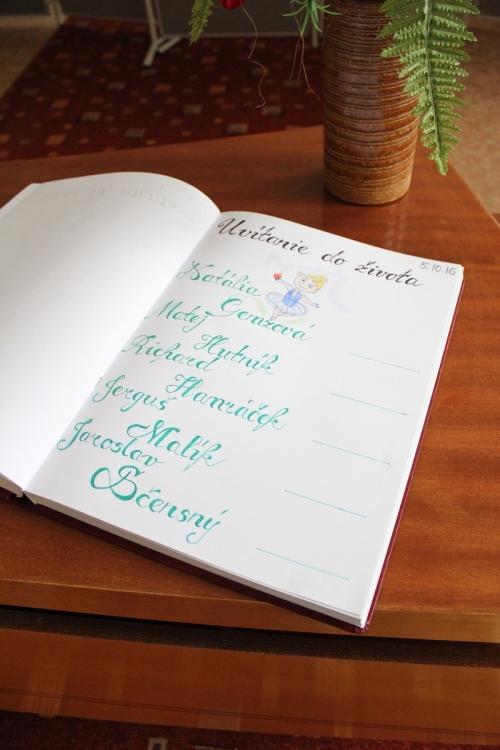 Uvítanie do života
5.10.16
Natália
Gonzová
Matej
Hutník
Richard
Hamráček
Jerguš
Malík
Jaroslav
Ščensný